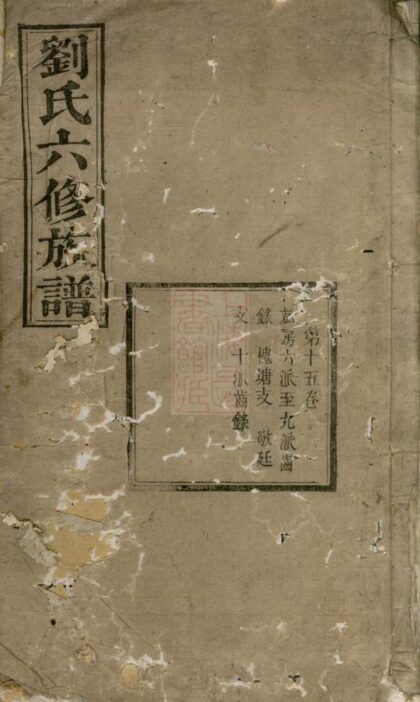 劉氏六修族譜
第十五卷
房六派至九派齒
錄 槐塘支 敬廷
支 十派齒錄